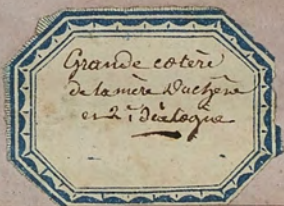 Grande cotère
de la mère Duchêne
en 2e. Dialogue